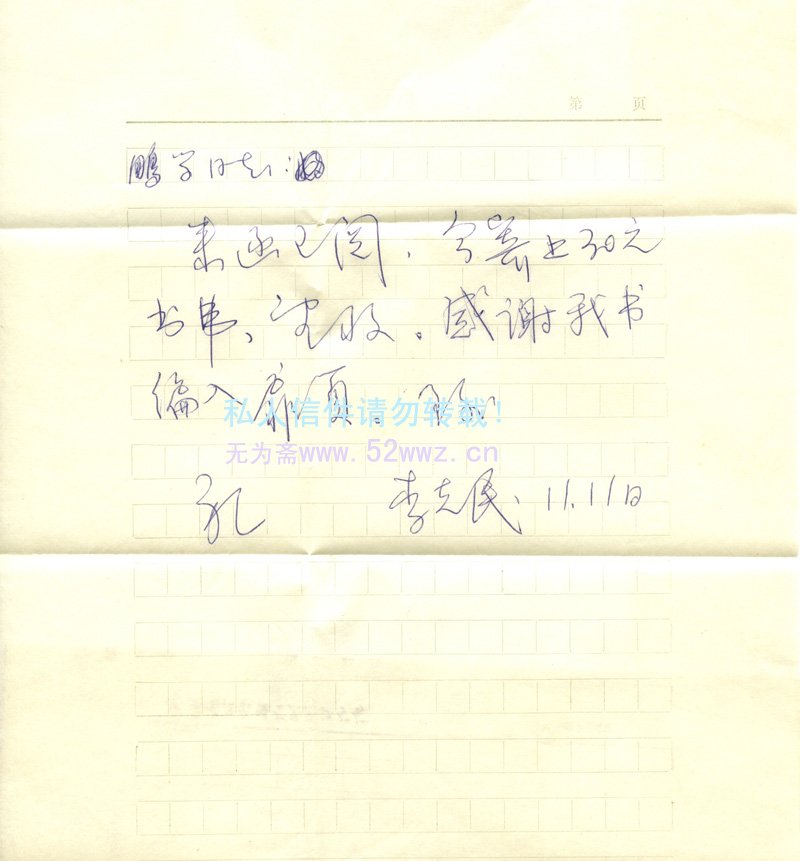 第 页
鹏学同志：
来函已阅，今寄上30元
书费，望收。感谢我书
编入扉页。
私人信件请勿转载!
无为斋www.52wwz.cn
礼 李克民 11.11日